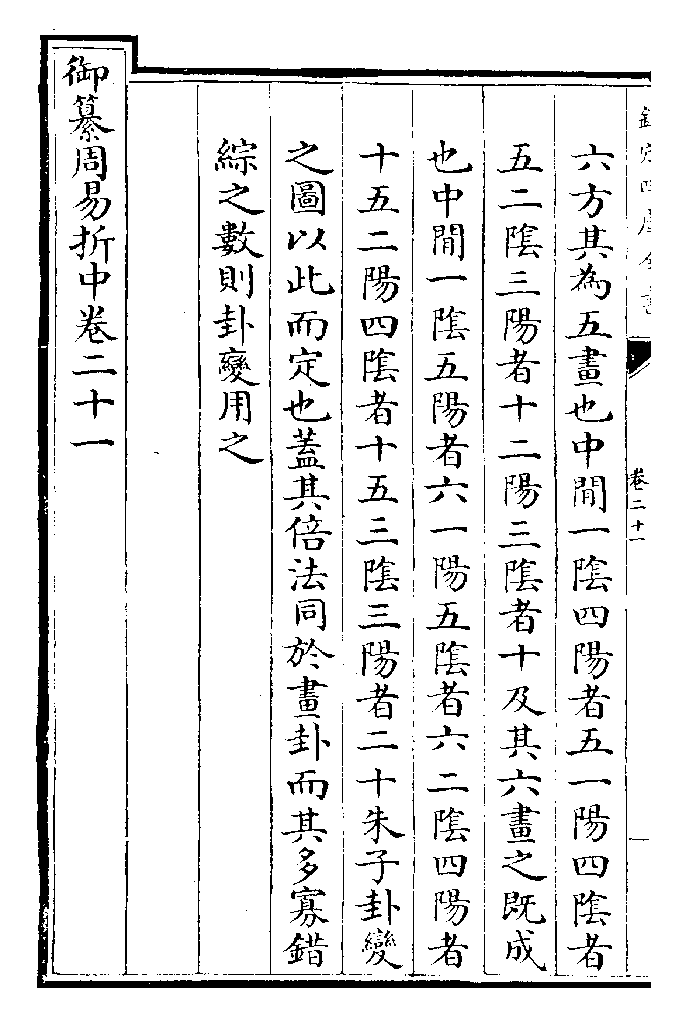 欽定四庫全書
卷二十一
六方其為五畫也中閒一陰四陽者五一陽四陰者
五二陰三陽者十二陽三陰者十及其六畫之既成
也中閒一陰五陽者六一陽五陰者六二陰四陽者
十五二陽四陰者十五三陰三陽者二十朱子卦變
之圖以此而定也蓋其倍法同於畫卦而其多寡錯
綜之數則卦變用之
御纂周易折中卷二十一